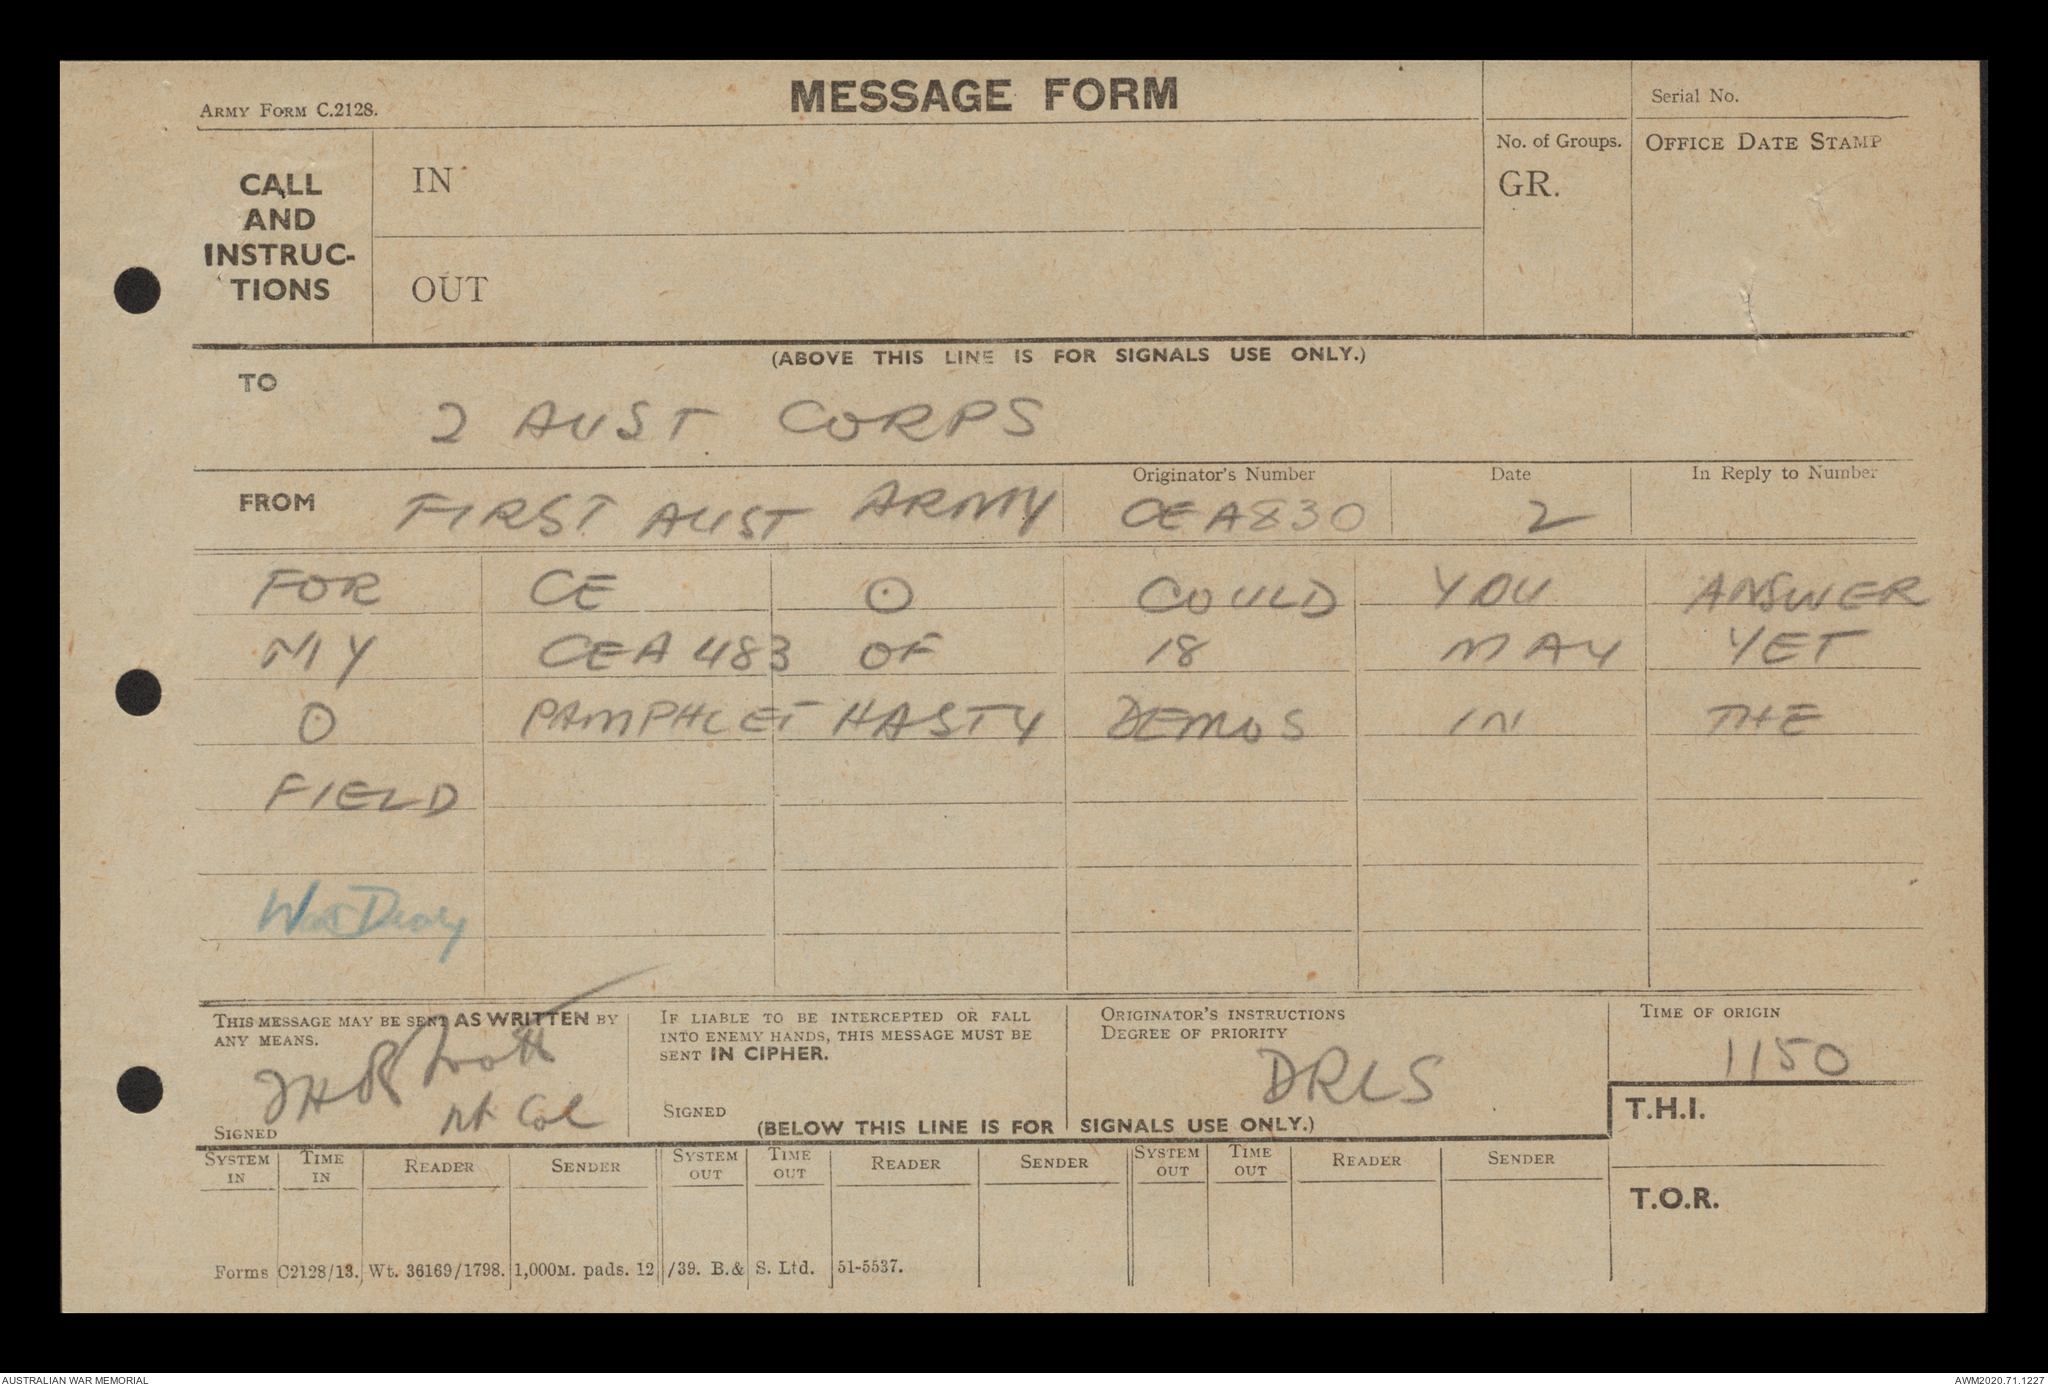 MESSAGE FORM
ARMY FORM C.2128.
Serial No.
CALL AND INSTRUC-TIONS
IN
OUT
No. of Groups.
GR.
OFFICE DATE STAMP
(ABOVE THIS LINE IS FOR SIGNALS USE ONLY.)
TO
2 AUST CORPS
FROM FIRST AUST ARMY
Originator's Number
CEA830
Date
2
In Reply to Number
FOR CE O COULD YOU ANSWER
MY CEA483 OF 18 MAY YET
O PAMPHLET HASTY DEMOS IN THE
FIELD
War Diary
THIS MESSAGE MAY BE SENT AS WRITTEN BY
ANY MEANS.
Lt Col
SIGNED
IF LIABLE TO BE INTERCEPTED OR FALL
INTO ENEMY HANDS, THIS MESSAGE MUST BE
SENT IN CIPHER.
SIGNED
ORIGINATOR'S INSTRUCTIONS
DEGREE OF PRIORITY
DRLS
TIME OF ORIGIN
1150
(BELOW THIS LINE IS FOR SIGNALS USE ONLY.)
T.H.I.
SYSTEM IN TIME IN READER SENDER SYSTEM OUT TIME OUT READER SENDER SYSTEM OUT TIME OUT READER SENDER
T.O.R.
Forms C2128/13. Wt. 36169/1798. 1,000M. pads. 12/39. B.& S. Ltd. 51-5537.
AUSTRALIAN WAR MEMORIAL
AWM2020.71.1227